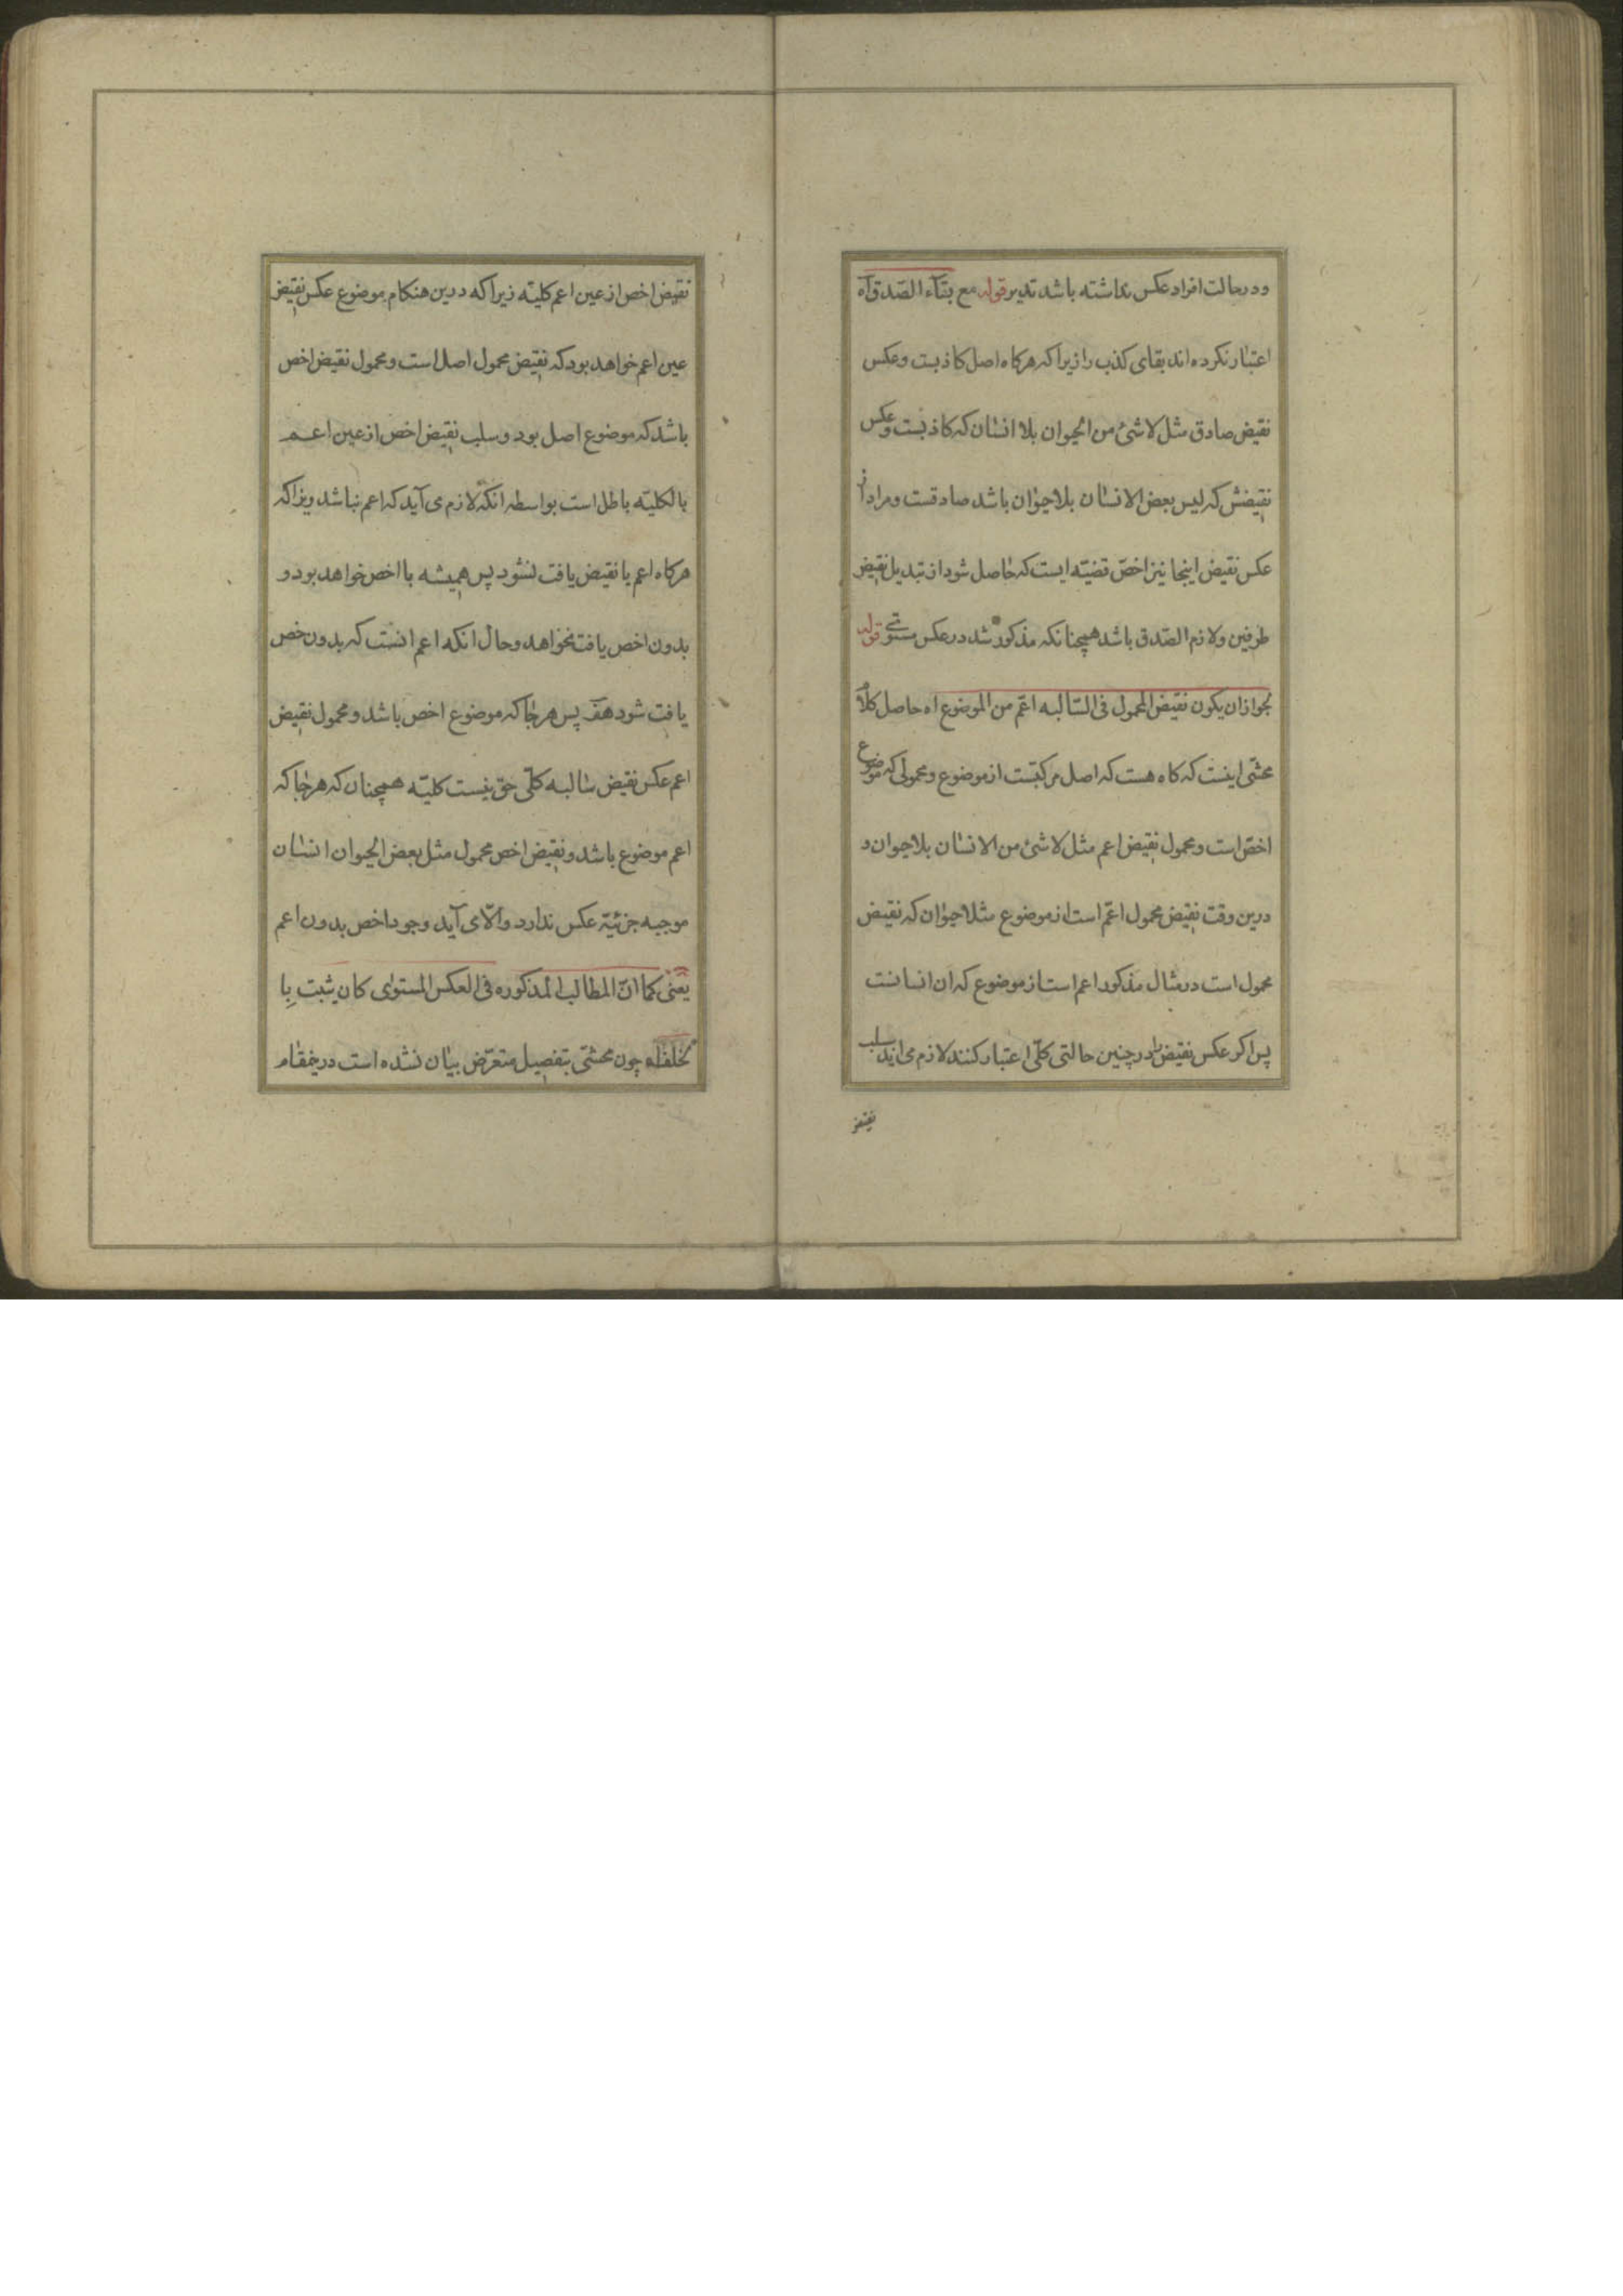 ودرحالت افراد عکس نداشته باشد تدبر قوله مع بقآء الصّدق آه
اعتبار نکرده اند بقای کذب را زیرا که هرکاه اصل کاذبست وعکس
نقیض صادق مثل لا شئ من الحیوان بلا انسان که کاذبست وعکس
نقیضش که لیس بعض الانسان بلا حیوان باشد صادقست ومراد از
عکس نقیض اینجا نیز اخصّ قضیّه ایست که حاصل شود از تبدیل نقیض
طرفین ولازم الصّدق باشد همچنانکه مذکور شد در عکس مستوی قوله
لجواز ان یکون نقیض المحمول فی السّالبه اعّم من الموضوع اه حاصل کلام
محشّی اینست که کاه هست که اصل مرکبّست از موضوع ومحمولی که موضوع
اخصّ است ومحمول نقیض اعم مثل لا شئ من الانسان بلا حیوان و
درین وقت نقیض محمول اعّم است از موضوع مثلا حیوان که نقیض
محمول است در مثال مذکور اعم است از موضوع که ان انسانست
پس اکر عکس نقیض را در چنین حالتی کلّی اعتبار کنند لازم می اید سلب
نقیض
نقیض اخص از عین اعم کلیّه زیرا که درین هنکام موضوع عکس نقیض
عین اعم خواهد بود که نقیض محمول اصل است ومحمول نقیض اخص
باشد که موضوع اصل بود وسلب نقیض اخص از عین اعم
بالکلیّه باطل است بواسطه انکه لازم می آید که اعم نباشد زیرا که
هرکاه اعم با نقیض یافت نشود پس همیشه با اخص خواهد بود و
بدون اخص یافت نخواهد وحال انکه اعم انست که بدون خص
یافت شود هف پس هرجا که موضوع اخص باشد ومحمول نقیض
اعم عکس نقیض سالبه کلّی حق نیست کلیّه همچنان که هرجا که
اعم موضوع باشد ونقیض اخص محمول مثل بعض الحیوان انسان
موجبه جزئیّه عکس ندارد والّا می آید وجود اخص بدون اعم
یعنی کما انّ المطالب المذکوره فی العکس المستوای کان یثبت بِا
لخلف اه چون محشّی بتفصیل متعرّض بیان نشده است درینمقام